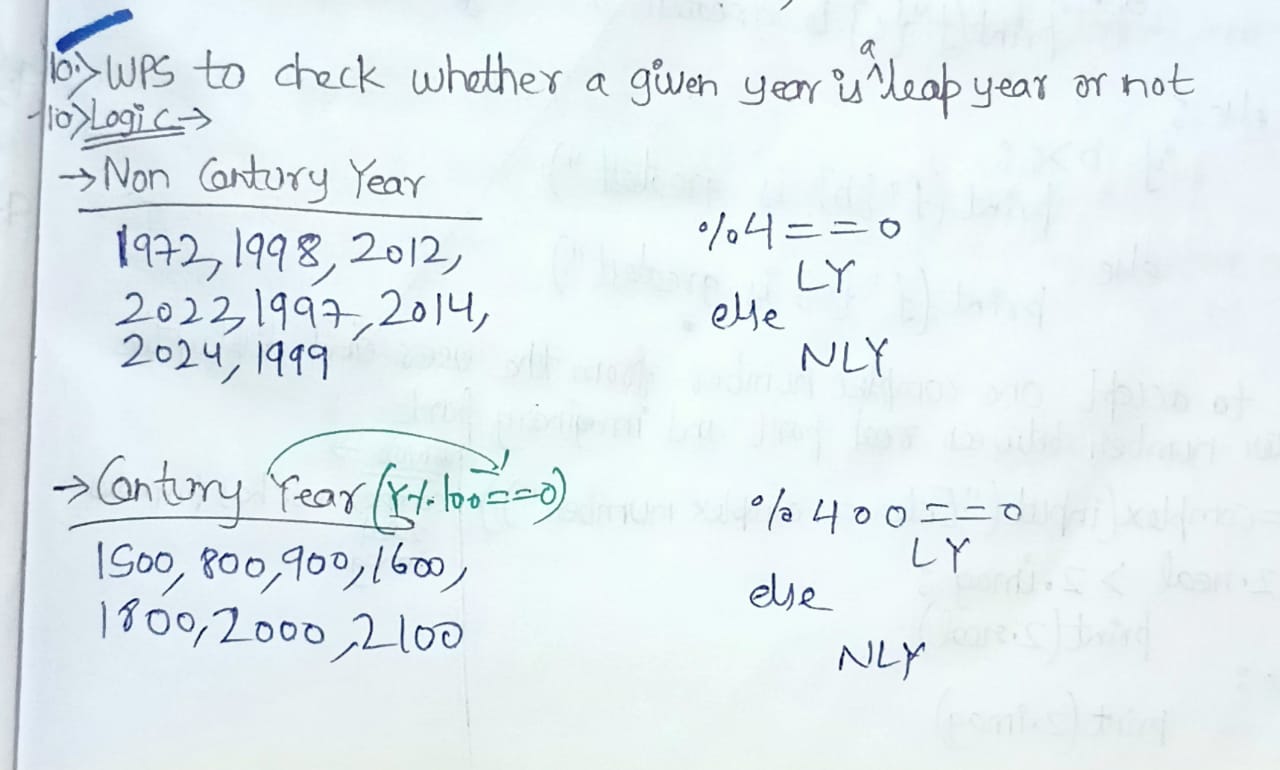 10.> WPS to check whether a given year is a leap year or not
10> Logic →
→ Non Contury Year
1972, 1998, 2012,
2022, 1997, 2014,
2024, 1999
%4 == 0
LY
else
NLY
→ Contury Year (Y%100==0)
1500, 800, 900, 1600,
1800, 2000, 2100
%400 == 0
LY
else
NLY